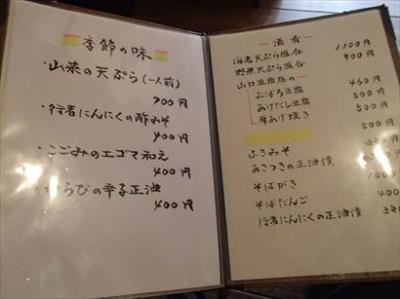 季節の味
・山菜の天ぷら(一人前)
700円
・行者にんにくの酢みそ
400円
・こごみのエゴマ和え
400円
・わらびの辛子正油
400円
酒肴
海老天ぷら盛合 1100円
野菜天ぷら盛合 900円
山口豆腐店の
おぼろ豆腐 450円
あげだし豆腐 500円
厚あげ焼き 500円
500円
ふきみそ
あさつきの正油漬
そばがき
そばだんご
行者にんにくの正油漬